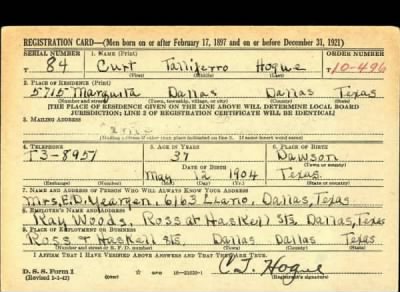 REGISTRATION CARD—(Men born on or after February 17, 1897 and on or before December 31, 1921)
SERIAL NUMBER 1. NAME (Print) ORDER NUMBER
T 84 Curt Talliferro Hogue T 10-496
(First) (Middle) (Last)
2. PLACE OF RESIDENCE (Print)
5715 Marquita Dallas Dallas Texas
(Number and street) (Town, township, village, or city) (County) (State)
[THE PLACE OF RESIDENCE GIVEN ON THE LINE ABOVE WILL DETERMINE LOCAL BOARD
JURISDICTION; LINE 2 OF REGISTRATION CERTIFICATE WILL BE IDENTICAL]
3. MAILING ADDRESS
Same
[Mailing address if other than place indicated on line 2. If same insert word same]
4. TELEPHONE 5. AGE IN YEARS 6. PLACE OF BIRTH
T3-8951 37 Dawson
DATE OF BIRTH (Town or county)
May 12 1904 Texas
(Exchange) (Number) (Mo.) (Day) (Yr.) (State or country)
7. NAME AND ADDRESS OF PERSON WHO WILL ALWAYS KNOW YOUR ADDRESS
Mrs. E.D. Yeargen, 6163 Llano, Dallas, Texas
8. EMPLOYER'S NAME AND ADDRESS
Ray Woods, Ross at Haskell Sts, Dallas, Texas
9. PLACE OF EMPLOYMENT OR BUSINESS
Ross & Haskell Sts. Dallas Dallas Texas
(Number and street or R. F. D. number) (Town) (County) (State)
I AFFIRM THAT I HAVE VERIFIED ABOVE ANSWERS AND THAT THEY ARE TRUE.
D. S. S. Form 1
(Revised 1-1-42) (over) 16—21630-1 C. T. Hogue
(Registrant's signature)